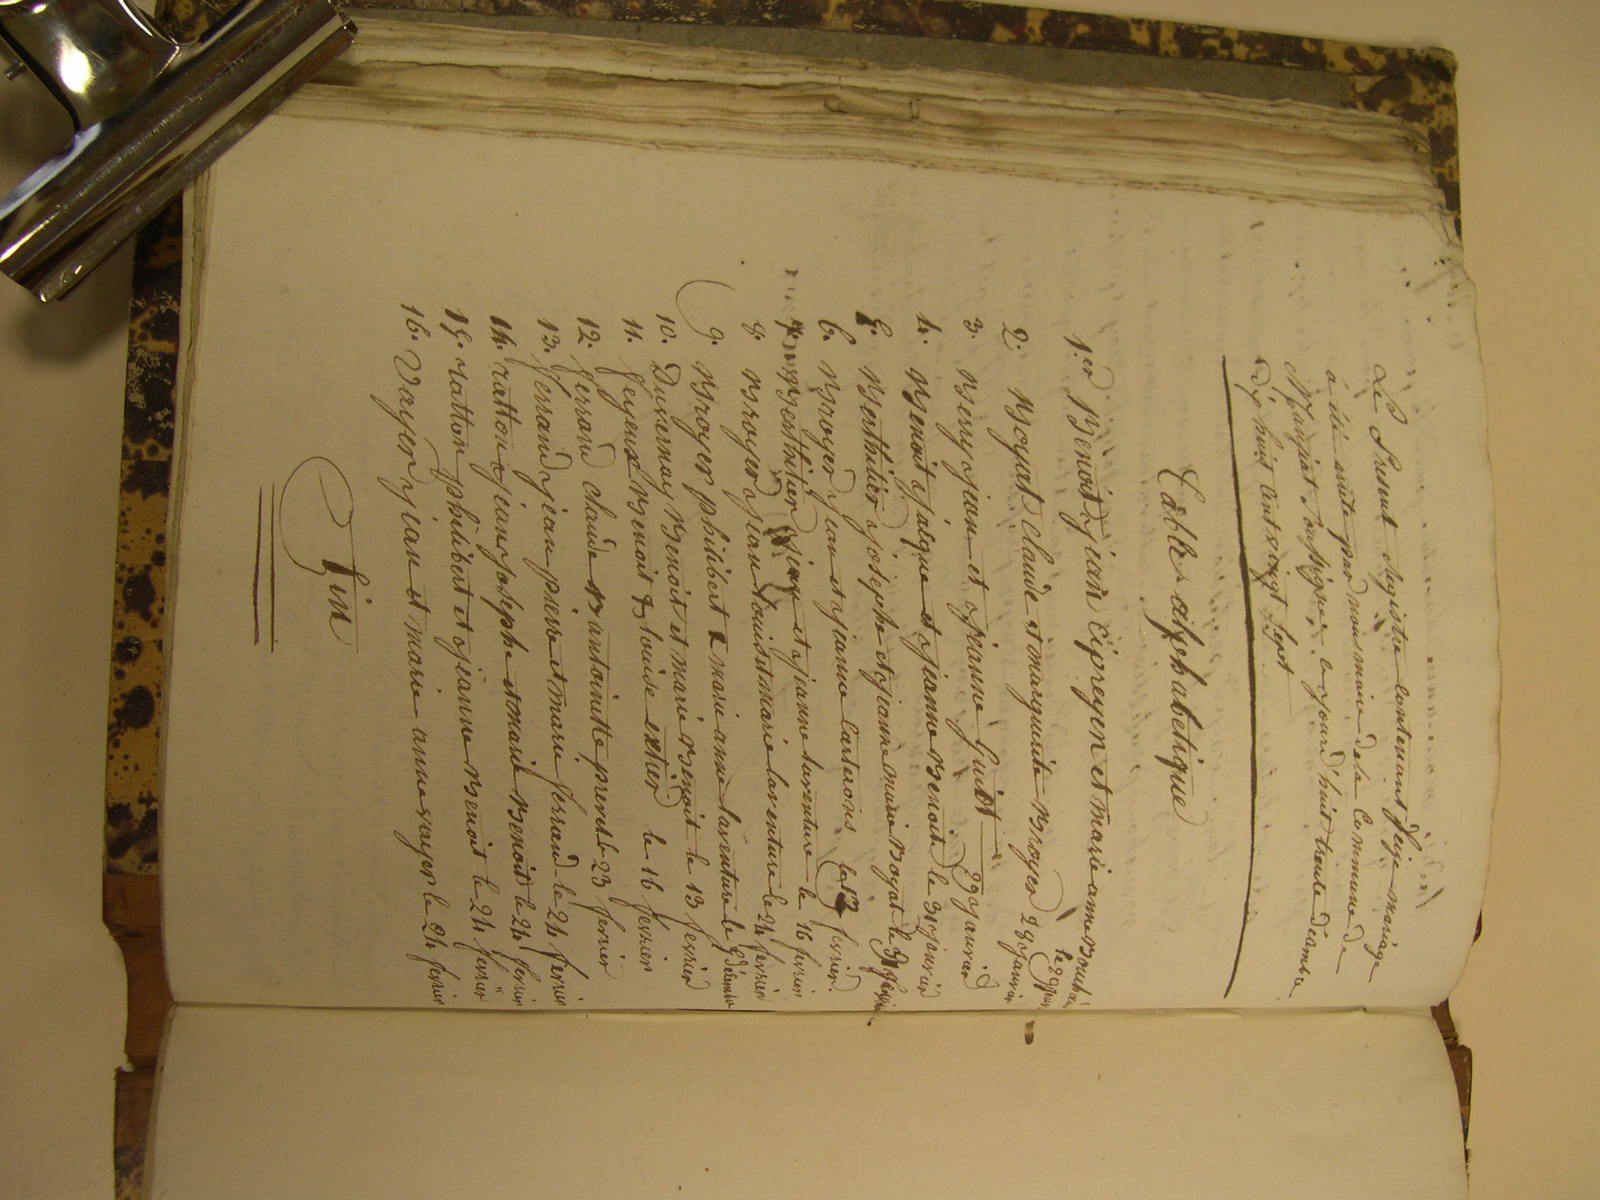 Le Present Registre contenant seize mariage
a été arreté par nous maire de la Commune de
Marjiat soussigné cejourd'huit trente decembre
dix huit cent vingt sept
Table alfabetique
1.er Benoit jean Ciprien et marie anne
le 29 janvier
2. Boyat Claude et marguerite Broyer 29 janvier
3. Berry jean et jeanne Guiot 29 janvier
4. Benoit jacque et jeanne Benoit le 31 janvier
5. Berthelier joseph et jeanne marie Boyat le
6. Broyer jean et jeanne le 13 fevrier
7. Berthelier et jeanne laventure le 16 fevrier
8. Broyer jean louis et marie laventure le 24 fevrier
9. Broyer philibert et marie anne laventure le decembre
10. Duvernay Benoit et marie Benoit le 13 fevrier
11. Benoit & louise le 16 fevrier
12. ferrand claude & antoinette le 23 fevrier
13. ferrand jean pierre et marie ferrand le 24 fevrier
14. ratton jean joseph et marie Benoit le 24 fevrier
15. ratton philibert et jeanne Benoit le 24 fevrier
16. Vayer jean et marie anne vayer le 24 fevrier
Fin